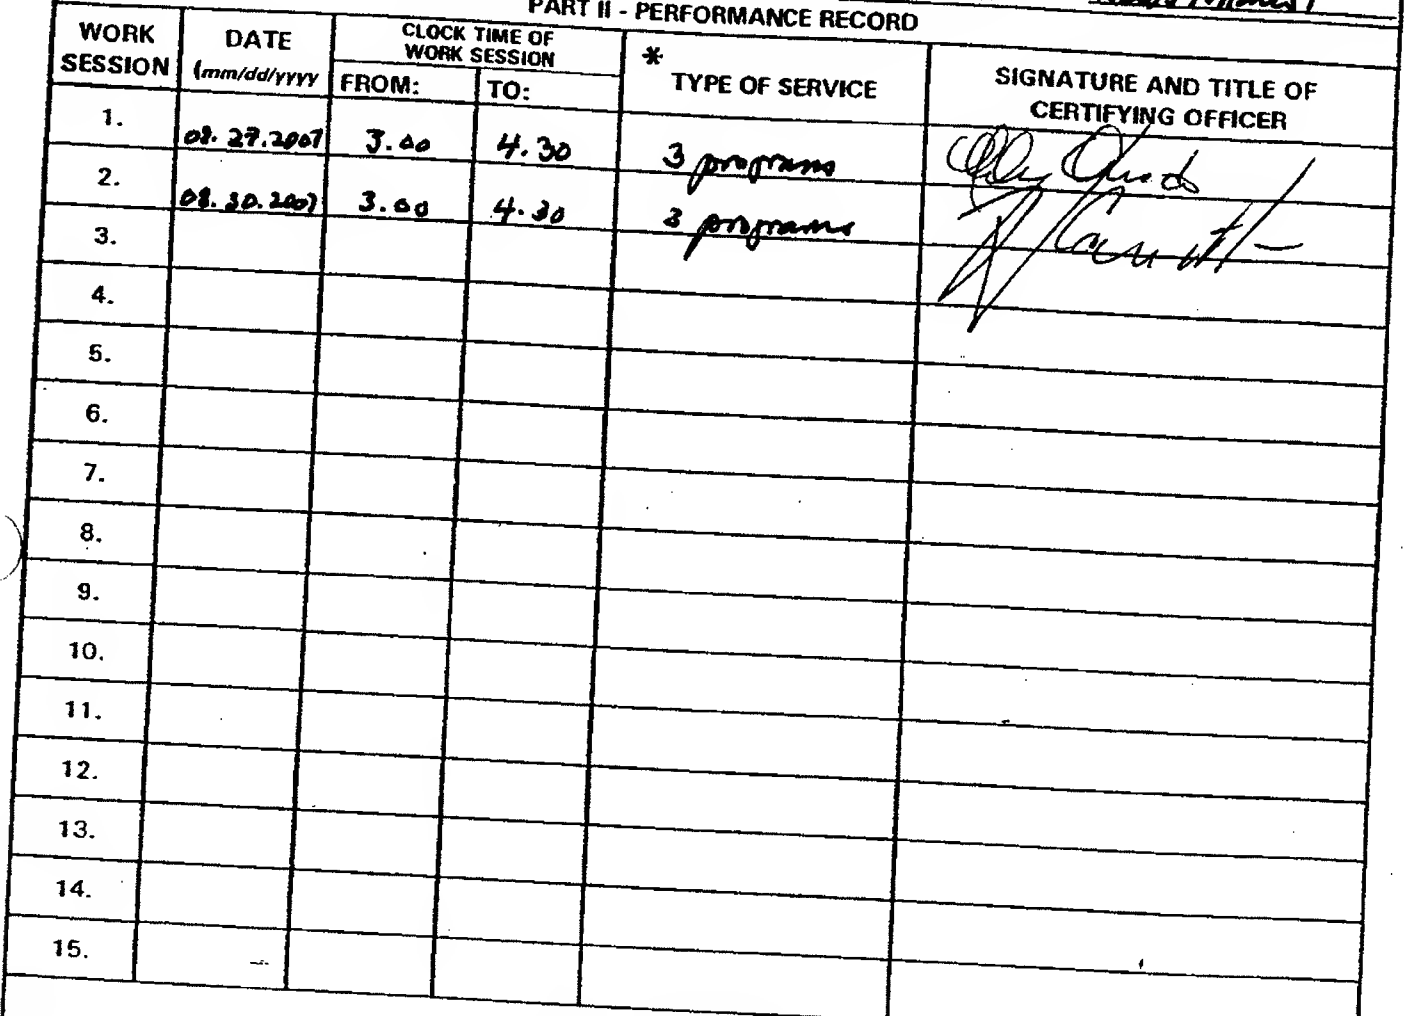 PART II - PERFORMANCE RECORD
WORK SESSION DATE (mm/dd/yyyy CLOCK TIME OF WORK SESSION FROM: TO: * TYPE OF SERVICE SIGNATURE AND TITLE OF CERTIFYING OFFICER
1. 08.27.2007 3.00 4.30 3 programs
2. 08.30.2007 3.00 4.30 3 programs
3.
4.
5.
6.
7.
8.
9.
10.
11.
12.
13.
14.
15.